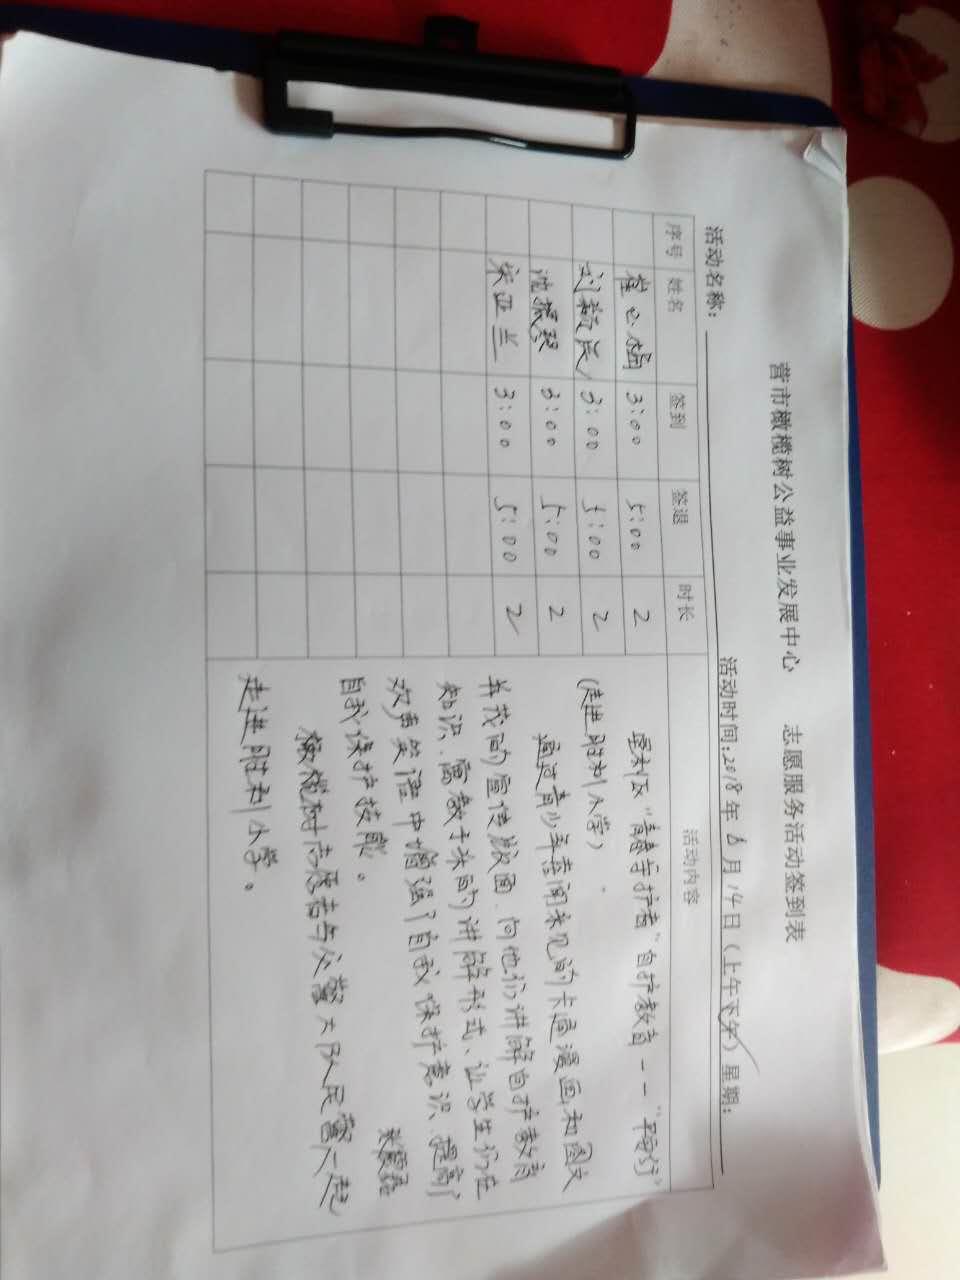 营市橄榄树公益事业发展中心 志愿服务活动签到表
活动名称： 活动时间：2018年6月14日（上午下午）星期：
序号 姓名 签到 签退 时长 活动内容
崔心楠 3:00 5:00 2
刘新 3:00 5:00 2
沈振翠 3:00 5:00 2
宋亚兰 3:00 5:00 2
垦利区“青春守护者”自护教育——“平安行”
（走进胜利小学）
通过青少年喜闻乐见的卡通漫画和图文
并茂的宣传版面、向他们讲解自护教育
知识、寓教于乐的讲解形式、让学生们在
欢声笑语中增强了自我保护意识、提高了
自我保护技能。
橄榄树志愿者与交警大队民警 一起
走进胜利小学。